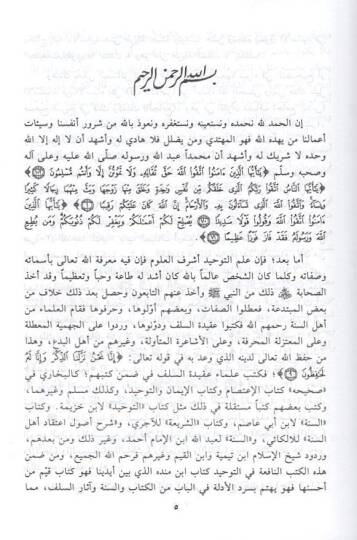 بسم الله الرحمن الرحيم
إن الحمد لله نحمده ونستعينه ونستغفره ونعوذ بالله من شرور أنفسنا وسيئات
أعمالنا من يهده الله فهو المهتدي ومن يضلل فلا هادي له وأشهد أن لا إله إلا الله
وحده لا شريك له وأشهد أن محمداً عبد الله ورسوله صلّى الله عليه وعلى آله
وصحبه وسلّم ﴿يَٰٓأَيُّهَا الَّذِينَ ءَامَنُوا اتَّقُوا اللَّهَ حَقَّ تُقَانِهِ وَلَا تَمُوتُنَّ إِلَّا وَأَنتُم مُّسْلِمُونَ﴾
﴿يَٰٓأَيُّهَا النَّاسُ اتَّقُوا رَبَّكُمُ الَّذِي خَلَقَكُم مِّن نَّفْسٍ وَٰحِدَةٍ وَخَلَقَ مِنْهَا زَوْجَهَا وَبَثَّ مِنْهُمَا رِجَالًا كَثِيرًا
وَنِسَآءً وَاتَّقُوا اللَّهَ الَّذِي تَسَآءَلُونَ بِهِ وَالْأَرْحَامَ إِنَّ اللَّهَ كَانَ عَلَيْكُمْ رَقِيبًا﴾ ﴿يَٰٓأَيُّهَا الَّذِينَ
ءَامَنُوا اتَّقُوا اللَّهَ وَقُولُوا قَوْلًا سَدِيدًا يُصْلِحْ لَكُمْ أَعْمَٰلَكُمْ وَيَغْفِرْ لَكُمْ ذُنُوبَكُمْ وَمَن يُطِعِ
اللَّهَ وَرَسُولَهُ فَقَدْ فَازَ فَوْزًا عَظِيمًا﴾
أما بعد؛ فإن علم التوحيد أشرف العلوم فإن فيه معرفة الله تعالى بأسمائه
وصفاته وكلما كان الشخص عالماً بالله كان أشد له طاعة وحباً وتعظيماً وقد أخذ
الصحابة ذلك من النبي ﷺ وأخذ عنهم التابعون وحصل بعد ذلك خلاف من
بعض المبتدعة، فعطلوا الصفات، وبعضهم أوّلوها، وحرفوها فقام العلماء من
أهل السنة رحمهم الله فكتبوا عقيدة السلف ودوّنوها، وردوا على الجهمية المعطلة
وعلى المعتزلة المحرفة، وعلى الأشاعرة المتأولة، وغيرهم من أهل البدع، وهذا
من حفظ الله تعالى لدينه الذي وعد به في قوله تعالى: ﴿إِنَّا نَحْنُ نَزَّلْنَا الذِّكْرَ وَإِنَّا لَهُ
لَحَٰفِظُونَ﴾؛ فكتب علماء عقيدة السلف في ضمن كتبهم؛ كالبخاري في
«صحيحه» كتاب الإعتصام وكتاب الإيمان والتوحيد، وكذلك مسلم وغيرهما،
وكتب بعضهم كتباً مستقلة في ذلك مثل كتاب «التوحيد» لابن خزيمة. وكتاب
«السنة» لابن أبي عاصم، وكتاب «الشريعة» للآجري، و«شرح أصول اعتقاد أهل
السنة» للالكائي، و«السنة» لعبد الله ابن الإمام أحمد، وغير ذلك ومن بعدهم،
وردود شيخ الإسلام ابن تيمية وابن القيم وغيرهم فرحم الله الجميع، ومن ضمن
هذه الكتب النافعة في التوحيد كتاب ابن منده الذي بين أيدينا فهو كتاب قيّم من
أحسنها فهو يهتم بسرد الأدلة في الباب من الكتب والسنة وآثار السلف، مما
٥